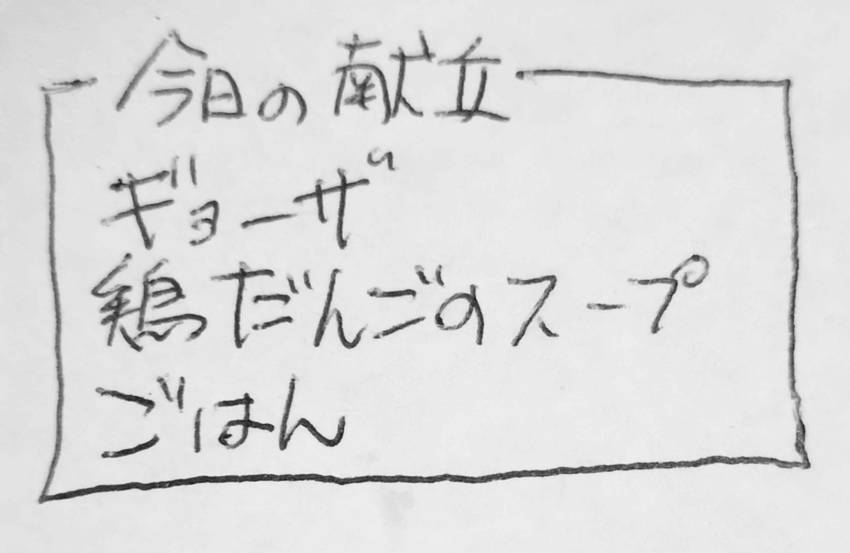 今日の献立
ギョーザ
鶏だんごのスープ
ごはん